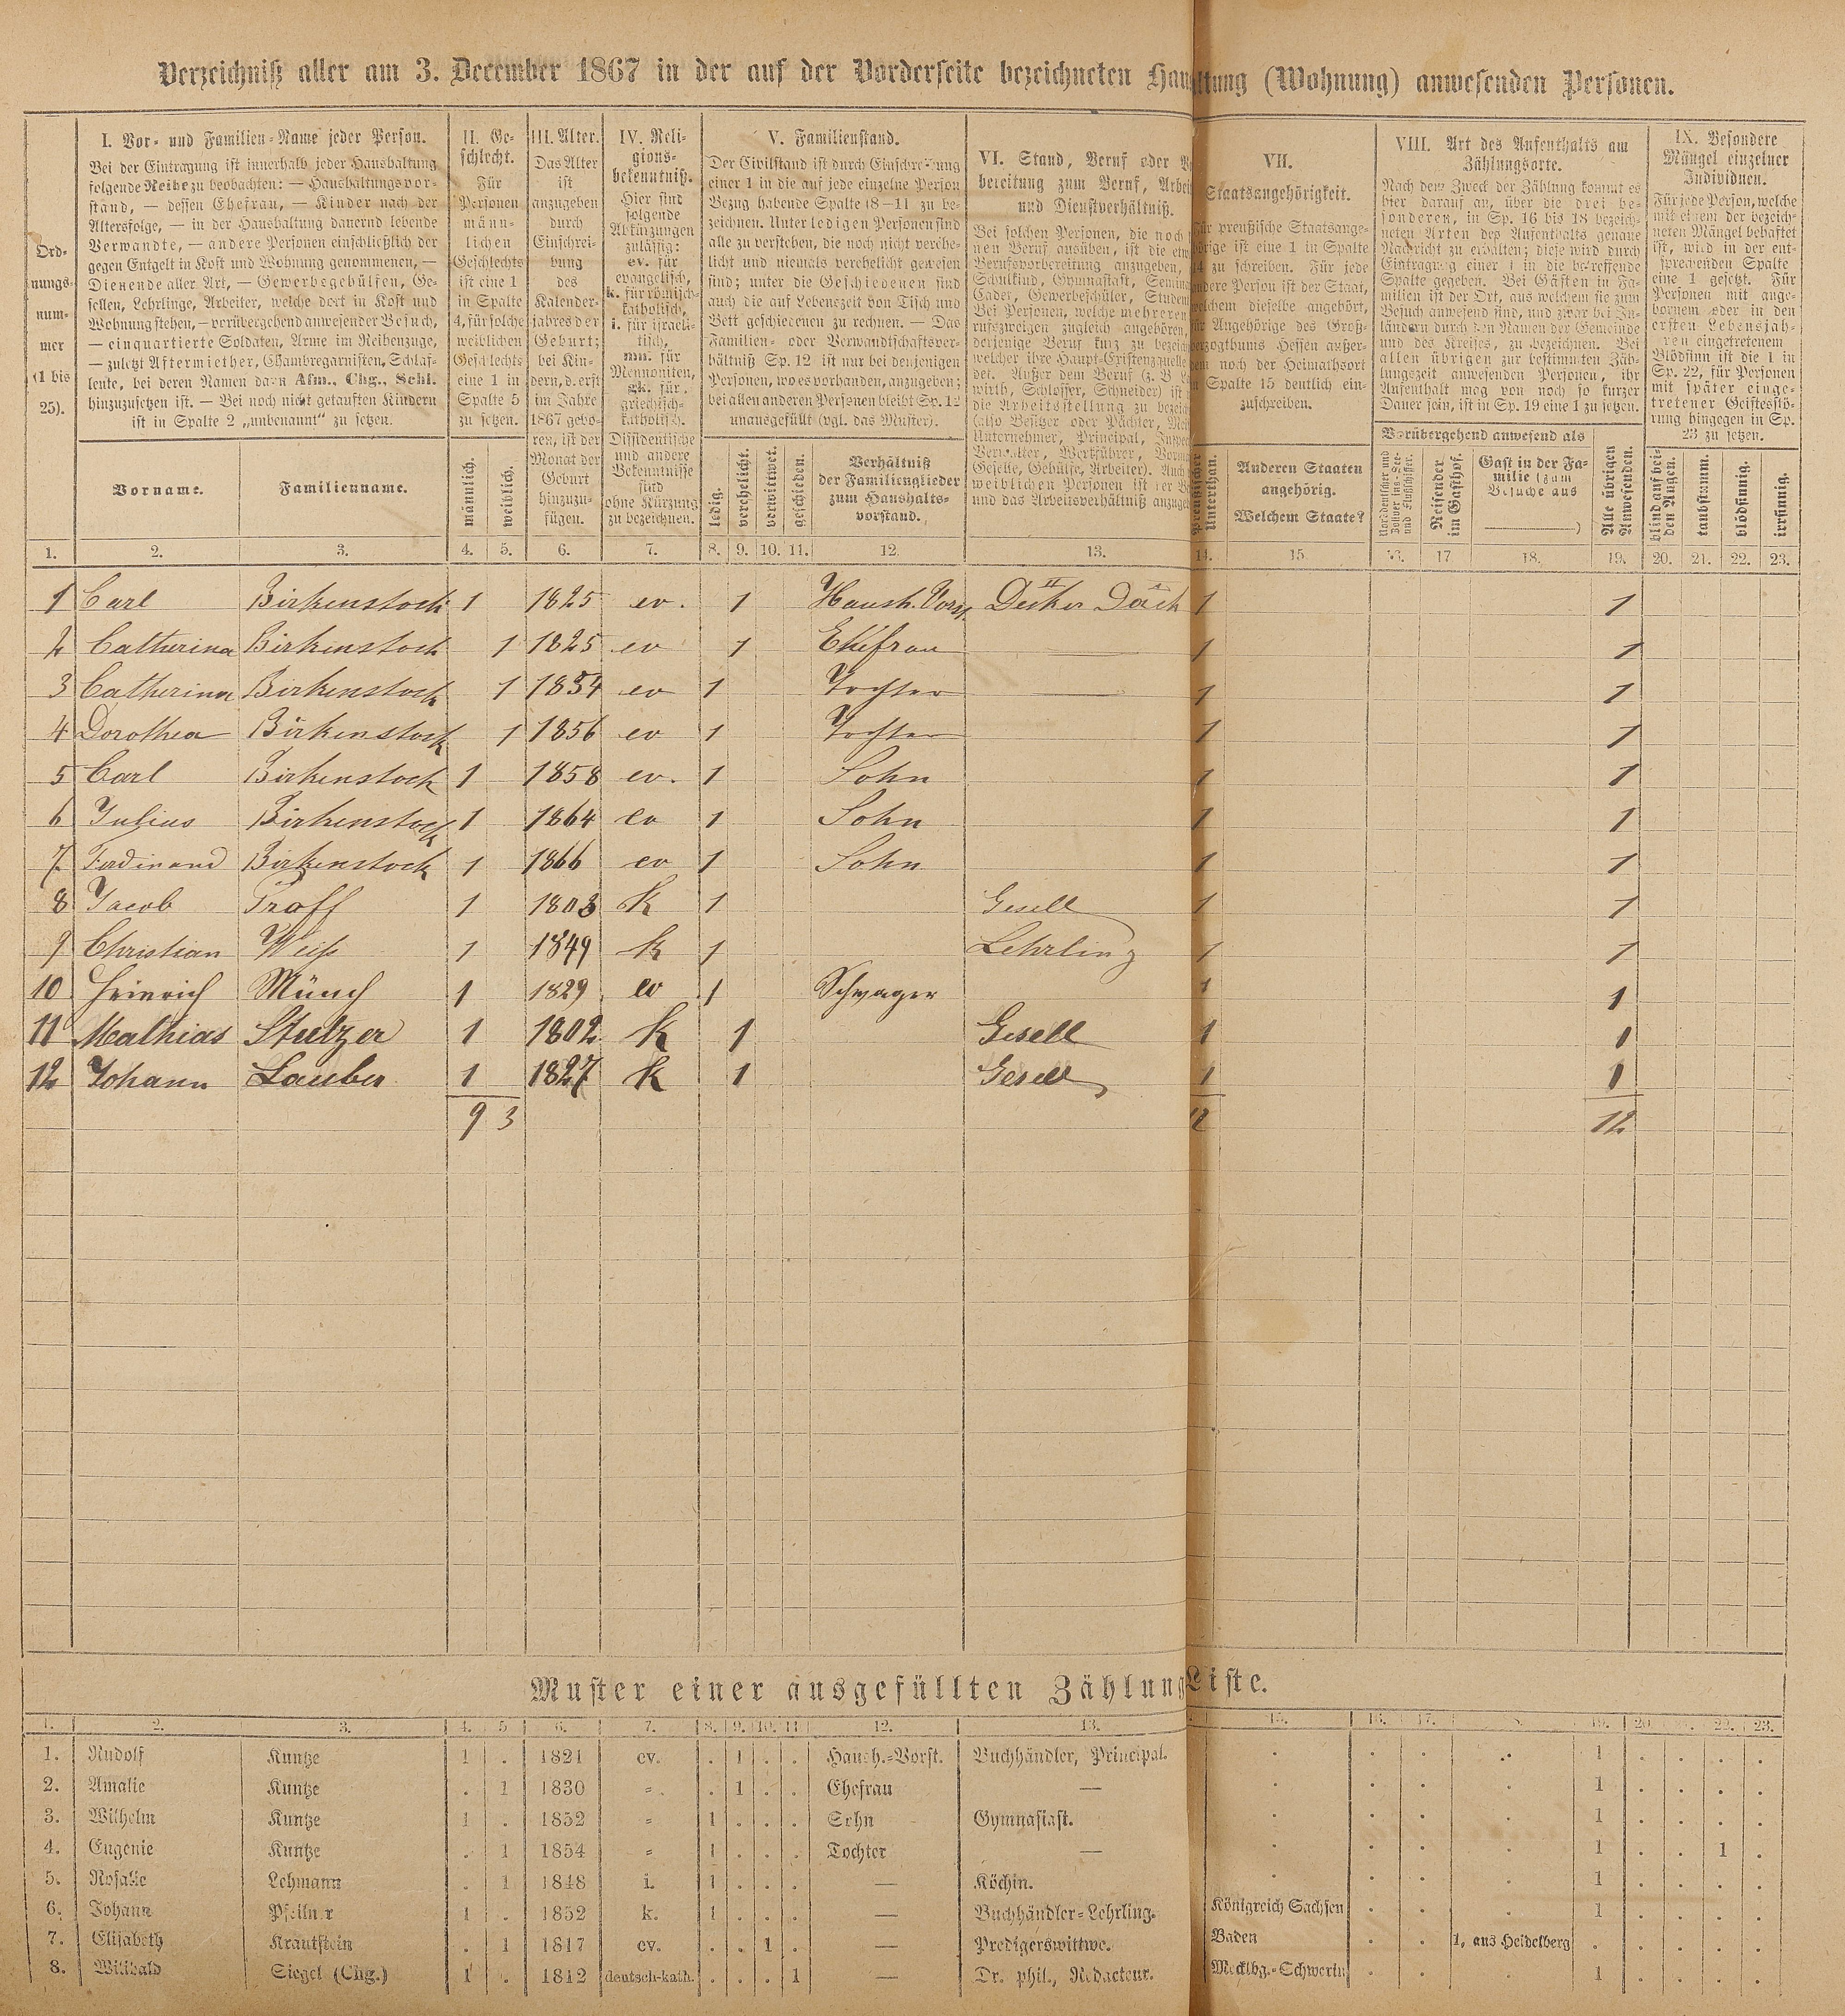 Verzeichniß aller am 3. December 1867 in der auf der Vorderseite bezeichneten Hau ltung (Wohnung) anwesenden Personen.
Ord-
nungs-
num-
mer
(1 bis
25).
I. Vor- und Familien-Name jeder Person.
Bei der Eintragung ist innerhalb jeder Haushaltung
folgende Reihe zu beobachten: — Haushaltungsvor-
stand, — dessen Ehefrau, — Kinder nach der
Altersfolge, — in der Haushaltung dauernd lebende
Verwandte, — andere Personen einschließlich der
gegen Entgelt in Kost und Wohnung genommenen, —
Dienende aller Art, — Gewerbegehülfen, Ge-
sellen, Lehrlinge, Arbeiter, welche dort in Kost und
Wohnung stehen, — vorübergehend anwesender Besuch,
— einquartierte Soldaten, Arme im Reihenzuge,
— zuletzt Aftermiether, Chambregarnisten, Schlaf-
leute, bei deren Namen dann Afm., Chg., Schl.
hinzuzusetzen ist. — Bei noch nicht getauften Kindern
ist in Spalte 2 „unbenannt“ zu setzen.
Vorname.
Familienname.
II. Ge-
schlecht.
Für
Personen
männ-
lichen
Geschlechts
ist eine 1
in Spalte
4, für solche
weiblichen
Geschlechts
eine 1 in
Spalte 5
zu setzen.
männlich.
weiblich.
III. Alter.
Das Alter
ist
anzugeben
durch
Einschrei-
bung
des
Kalender-
jahres der
Geburt;
bei Kin-
dern, d. erst
im Jahre
1867 gebo-
ren, ist der
Monat der
Geburt
hinzuzu-
fügen.
IV. Reli-
gions-
bekenntniß.
Hier sind
folgende
Abkürzungen
zulässig:
ev. für
evangelisch,
k. für römisch-
katholisch,
i. für israeli-
tisch,
mn. für
Mennoniten,
gk. für
griechisch-
katholisch.
Dissidentische
und andere
Bekenntnisse
sind
ohne Kürzung
zu bezeichnen.
V. Familienstand.
Der Civilstand ist durch Einschreibung
einer 1 in die auf jede einzelne Person
Bezug habende Spalte (8—11) zu be-
zeichnen. Unter ledigen Personen sind
alle zu verstehen, die noch nicht verehe-
licht und niemals verehelicht gewesen
sind; unter die Geschiedenen sind
auch die auf Lebenszeit von Tisch und
Bett geschiedenen zu rechnen. — Das
Familien- oder Verwandtschaftsver-
hältniß Sp. 12 ist nur bei denjenigen
Personen, wo es vorhanden, anzugeben;
bei allen anderen Personen bleibt Sp. 12
unausgefüllt (vgl. das Muster).
ledig.
verehelicht.
verwittwet.
geschieden.
Verhältniß
der Familienglieder
zum Haushalts-
vorstand.
VI. Stand, Beruf oder
bereitung zum Beruf, Arbei
und Dienstverhältniß.
Bei solchen Personen, die noch
nen Beruf ausüben, ist die
Berufsvorbereitung anzugeben,
Schulkind, Gymnasiast, Semina
Cadet, Gewerbeschüler, Studen
Bei Personen, welche mehreren
rufszweigen zugleich angehören,
derjenige Beruf kurz zu bezeich
welcher ihre Haupt-Existenzquelle
det. Außer dem Beruf (z. B.
wirth, Schlosser, Schneider) ist
die Arbeitsstellung zu bezeich
(also Besitzer oder Pächter,
Unternehmer, Principal, Inspec
Verwalter, Werkführer,
Geselle, Gehülfe, Arbeiter). Auch
weiblichen Personen ist der
und das Arbeitsverhältniß anzuge
VII.
Staatsangehörigkeit.
Für preußische Staatsange-
hörige ist eine 1 in Spalte
14 zu schreiben. Für jede
andere Person ist der Staat,
welchem dieselbe angehört,
für Angehörige des Groß-
herzogthums Hessen außer-
dem noch der Heimathsort
in Spalte 15 deutlich ein-
zuschreiben.
Preußischer
Unterthan.
Anderen Staaten
angehörig.
Welchem Staate?
VIII. Art des Aufenthalts am
Zählungsorte.
Nach dem Zweck der Zählung kommt es
hier darauf an, über die drei be-
sonderen, in Sp. 16 bis 18 bezeich-
neten Arten des Aufenthalts genaue
Nachricht zu erhalten; diese wird durch
Eintragung einer 1 in die betreffende
Spalte gegeben. Bei Gästen in Fa-
milien ist der Ort, aus welchem sie zum
Besuch anwesend sind, und zwar bei In-
ländern durch den Namen der Gemeinde
und des Kreises, zu bezeichnen. Bei
allen übrigen zur bestimmten Zäh-
lungszeit anwesenden Personen, ihr
Aufenthalt mag von noch so kurzer
Dauer sein, ist in Sp. 19 eine 1 zu setzen.
Vorübergehend anwesend als
Norddeutscher und
Zollver. ins-See-
und Flußschiffer.
Reisender
im Gasthof.
Gast in der Fa-
milie (zum
Besuche aus
)
Alle übrigen
Anwesenden.
IX. Besondere
Mängel einzelner
Individuen.
Für jede Person, welche
mit einem der bezeich-
neten Mängel behaftet
ist, wird in der ent-
sprechenden Spalte
eine 1 gesetzt. Für
Personen mit ange-
bornem oder in den
ersten Lebensjah-
ren eingetretenem
Blödsinn ist die 1 in
Sp. 22, für Personen
mit später einge-
tretener Geistesstö-
rung hingegen in Sp.
23 zu setzen.
blind auf bei-
den Augen.
taubstumm.
blödsinnig.
irrsinnig.
1. 2. 3. 4. 5. 6. 7. 8. 9. 10. 11. 12. 13. 14. 15. 16. 17. 18. 19. 20. 21. 22. 23.
1 Carl Birkenstock 1 1825 ev. 1 Haush. Vorst. Decker Däch 1 1
2 Catherina Birkenstock 1 1825 ev 1 Ehefrau — 1 1
3 Catherina Birkenstock 1 1854 ev 1 Tochter — 1 1
4 Dorothea Birkenstock 1 1856 ev 1 Tochter 1 1
5 Carl Birkenstock 1 1858 ev. 1 Sohn 1 1
6 Julius Birkenstock 1 1864 ev 1 Sohn 1 1
7 Ferdinand Birkenstock 1 1866 ev 1 Sohn 1 1
8 Jacob 1 1803 K 1 Gesell 1 1
9 Christian Weiß 1 1849 k 1 Lehrling 1 1
10 Heinrich Münch 1 1829 ev 1 Schwager 1 1
11 Mathias Stutzer 1 1802 K 1 Gesell 1 1
12 Johann Lauber 1 1827 K 1 Gesell 1 1
9 3 12 12
Muster einer ausgefüllten Zählung Liste.
1. 2. 3. 4. 5 6. 7. 8. 9. 10. 11 12. 13. 15. 16. 17. 19. 20 22. 23.
1. Rudolf Kuntze 1 . 1821 ev. . 1 . . Haush.-Vorst. Buchhändler, Principal. . . . . 1 . . . .
2. Amalie Kuntze . 1 1830 = . 1 . . Ehefrau — . . . . 1 . . . .
3. Wilhelm Kuntze 1 . 1852 = 1 . . . Sohn Gymnasiast. . . . . 1 . . . .
4. Eugenie Kuntze . 1 1854 = 1 . . . Tochter — . . . . 1 . . 1 .
5. Rosalie Lehmann . 1 1848 i. 1 . . . — Köchin. . . . . 1 . . . .
6. Johann Pfeilner 1 . 1852 k. 1 . . . — Buchhändler-Lehrling. Königreich Sachsen . . . 1 . . . .
7. Elisabeth Krautstein . 1 1817 ev. . . 1 . — Predigerswittwe. Baden . . 1, aus Heidelberg . . . . .
8. Wilibald Siegel (Chg.) 1 . 1842 deutsch-kath. . . . 1 — Dr. phil., Redacteur. Mecklbg.-Schwerin . . . 1 . . . .